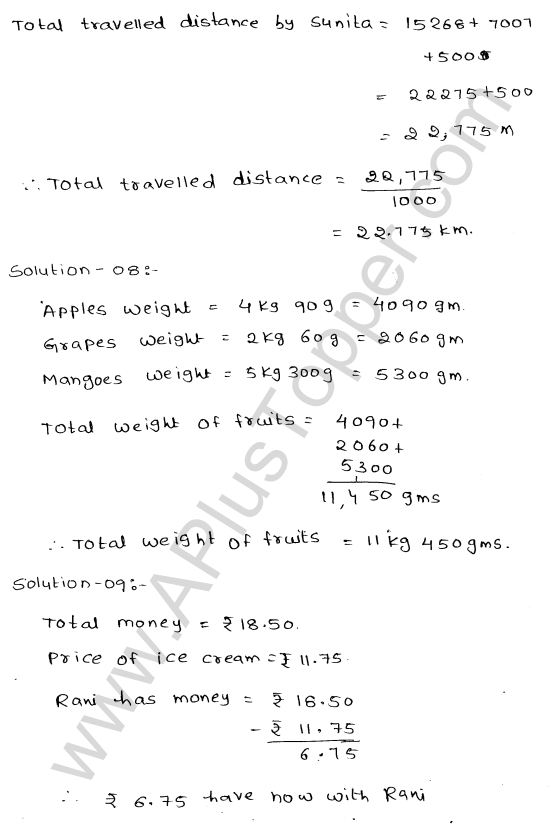 Total travelled distance by Sunita = 15268 + 7007
+ 500
= 22275 + 500
= 22,775 m
∴ Total travelled distance = 22,775
1000
= 22.775 km.
Solution - 08:-
Apples weight = 4 kg 90 g = 4090 gm.
Grapes weight = 2 kg 60 g = 2060 gm
Mangoes weight = 5 kg 300 g = 5300 gm.
Total weight of fruits = 4090 +
2060 +
5300
11,450 gms
∴ Total weight of fruits = 11 kg 450 gms.
Solution - 09:-
Total money = ₹ 18.50.
Price of ice cream = ₹ 11.75.
Rani has money = ₹ 18.50
- ₹ 11.75
6.75
∴ ₹ 6.75 have now with Rani
www.APlusTopper.com